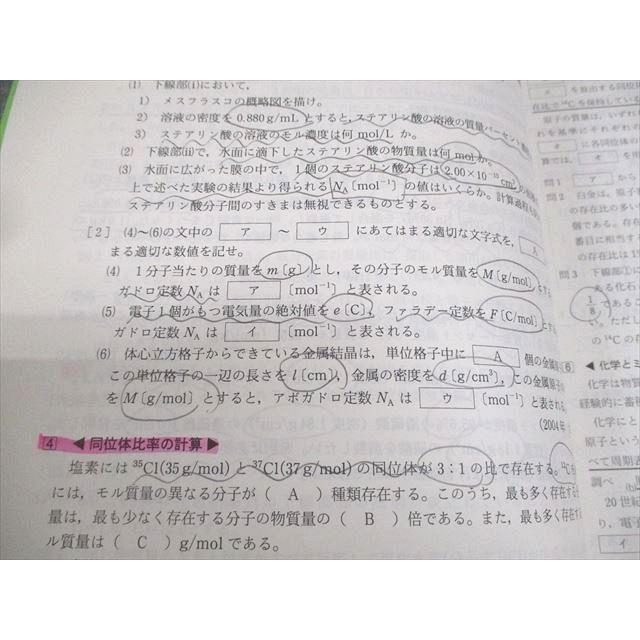 (1) 下線部(i)において,
1) メスフラスコの概略図を描け。
2) 溶液の密度を 0.880 g/mL とすると,ステアリン酸の溶液の質量パーセント
3) ステアリン酸の溶液のモル濃度は何 mol/L か。
(2) 下線部(ii)で, 水面に滴下したステアリン酸の物質量は何 mol か。
(3) 水面に広がった膜の中で, 1個のステアリン酸分子は 2.00×10⁻¹⁵ cm²
上で述べた実験の結果より得られる N_A〔mol⁻¹〕の値はいくらか。計算過程も
ステアリン酸分子間のすきまは無視できるものとする。
[2] (4)~(6)の文中の ア ~ ウ にあてはまる適切な文字式を, A
まる適切な数値を記せ。
(4) 1分子当たりの質量を m〔g〕とし, その分子のモル質量を M〔g/mol〕とす
ガドロ定数 N_A は ア 〔mol⁻¹〕と表される。
(5) 電子1個がもつ電気量の絶対値を e〔C〕, ファラデー定数を F〔C/mol〕とす
ガドロ定数 N_A は イ 〔mol⁻¹〕と表される。
(6) 体心立方格子からできている金属結晶は, 単位格子中に A 個の金属原
この単位格子の一辺の長さを l〔cm〕, 金属の密度を d〔g/cm³〕, この金属原
を M〔g/mol〕とすると, アボガドロ定数 N_A は ウ 〔mol⁻¹〕と表される。
(2004年
4 ◀同位体比率の計算▶
塩素には ³⁵Cl(35 g/mol) と ³⁷Cl(37 g/mol) の同位体が 3:1 の比で存在する。
には, モル質量の異なる分子が( A )種類存在する。このうち, 最も多く存在す
量は, 最も少なく存在する分子の物質量の( B )倍である。また, 最も多く存在
ル質量は( C )g/mol である。
を放出する同位
在比で ¹⁴C を保持してい
原子の質量は, いずれ
れを基準にそれぞれ
オ に各同位体の
算では, オ を用
問1 ア から
問2 白金は, 原子
の存在比の多い
個である。存在
番目に相当す
の存在比は1
問3 下線部
ある化石
1/8 である
い。ただし
の存在比
6
◀化学とミ
化学は物質
経験的に蓄
化学にと
原子という
べて周期
調べ (b)
20世紀
り, 電子
イ